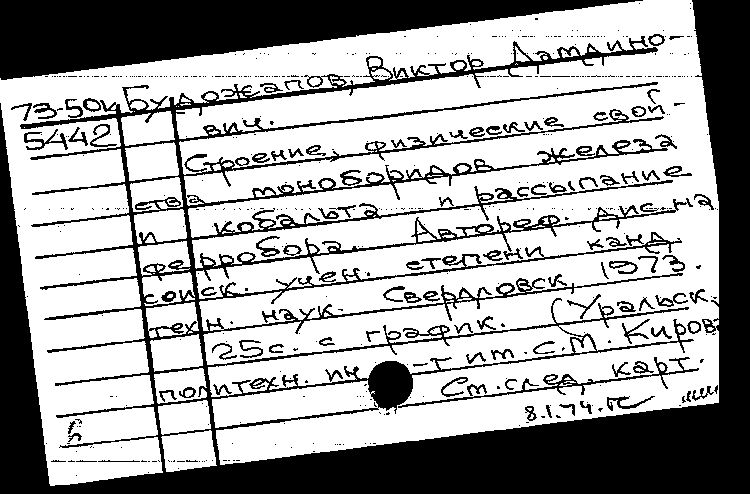 73-50ч Будожапов, Виктор Дамдино-
5442 вич.
Строение, физические свой-
ства моноборидов железа
и кобальта и рассыпание
ферробора. Автореф. дис. на
соиск. учен. степени канд.
техн. наук. Свердловск, 1973.
25с. с график. (Уральск.
политехн. ин-т им. С.М. Кирова
См. след. карт.
8.I.74.